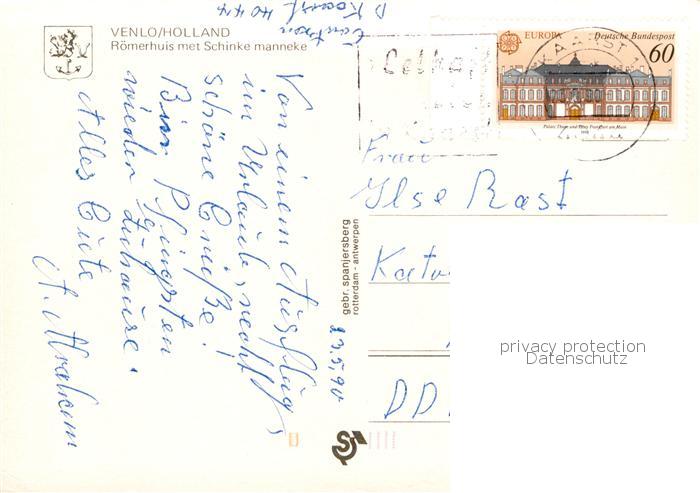 VENLO/HOLLAND
Römerhuis met Schinke manneke
D
4044
EUROPA
Deutsche Bundespost
60
Palais Thurn und Taxis Frankfurt am Main
1990
KAARST 1
Von einem Ausflug,
im Urlaub, recht
schöne Grüße!
Bin Pfingsten
wieder Zuhause.
Alles Gute
23.5.90
gebr. spanjersberg
rotterdam - antwerpen
Frau
Ilse Rast
DD
privacy protection
Datenschutz